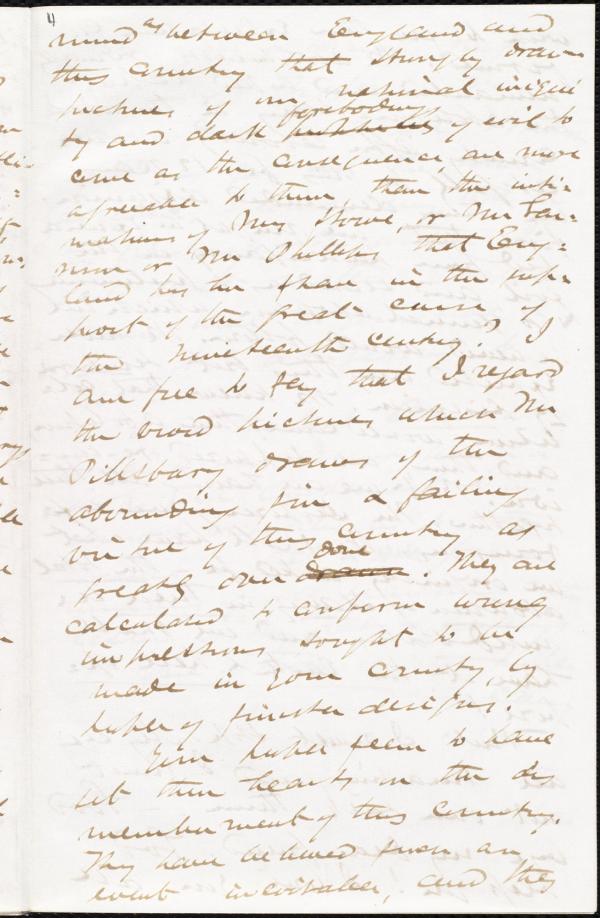 4
mind as between England and
this country that strongly drawn
pictures of our national iniqui
ty and dark forebodings of evil to
come as the consequence, are more
agreeable to them, than the inti=
mations of Mrs Stowe, or Mr
or Mr Phillips that Eng=
land his her share in the sup=
port of the great curse of
the nineteenth century." I
am free to say that I regard
the word pictures which Mr
Pillsbury draws of the
abounding sin & failing
virtue of this country as
greatly over done drawn. They are
calculated to confirm wrong
impressions sought to be
made in your country, by
papers of sinister designs.
Your papers seem to have
set their hearts on the dis
memberment of this country.
They have believed such an
event inevitable, and they